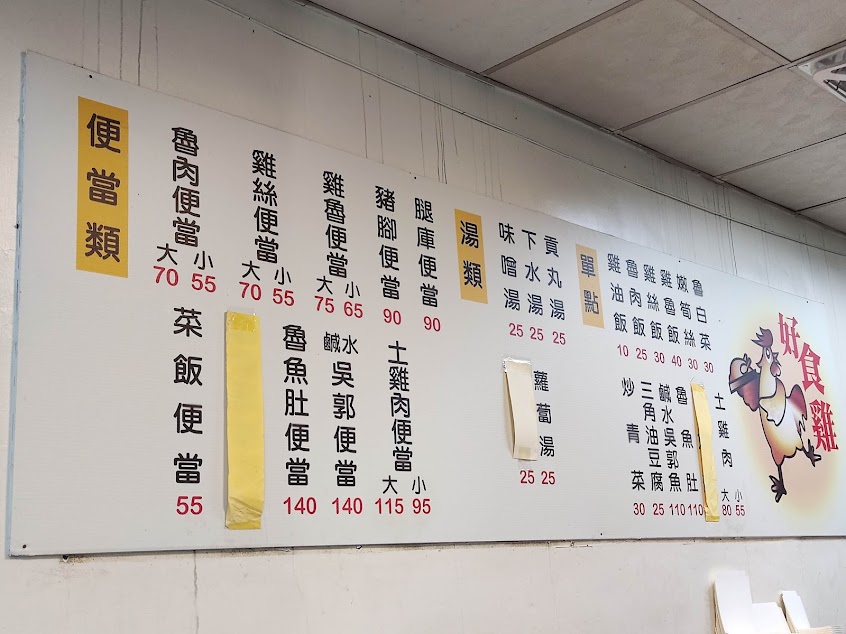 便當類
魯肉便當
大 小
70 55
雞絲便當
大 小
70 55
雞魯便當
大 小
75 65
豬腳便當
90
腿庫便當
90
菜飯便當
55
魯魚肚便當
140
鹹水吳郭便當
140
土雞肉便當
大 小
115 95
湯類
味噌湯
25
下水湯
25
貢丸湯
25
25
蘿蔔湯
25
單點
雞油飯
10
魯肉飯
25
雞絲飯
30
雞魯飯
40
嫩筍絲
30
魯白菜
30
炒青菜
30
三角油豆腐
25
鹹水吳郭魚
110
魯魚肚
110
土雞肉
大 小
80 55
好食雞